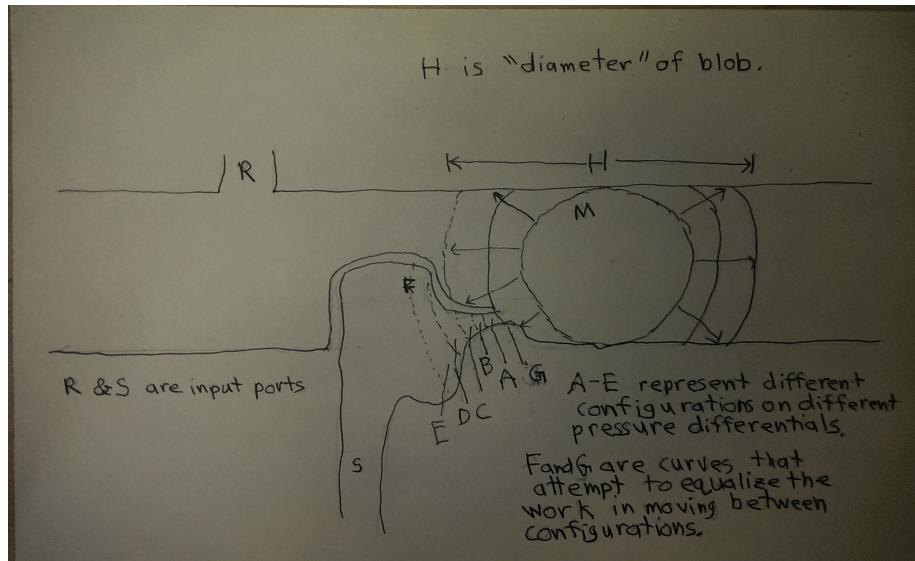 H is "diameter" of blob.
H
R
M
F
R & S are input ports
B
A
G
D
C
E
S
A-E represent different
configurations on different
pressure differentials.
F and G are curves that
attempt to equalize the
work in moving between
configurations.